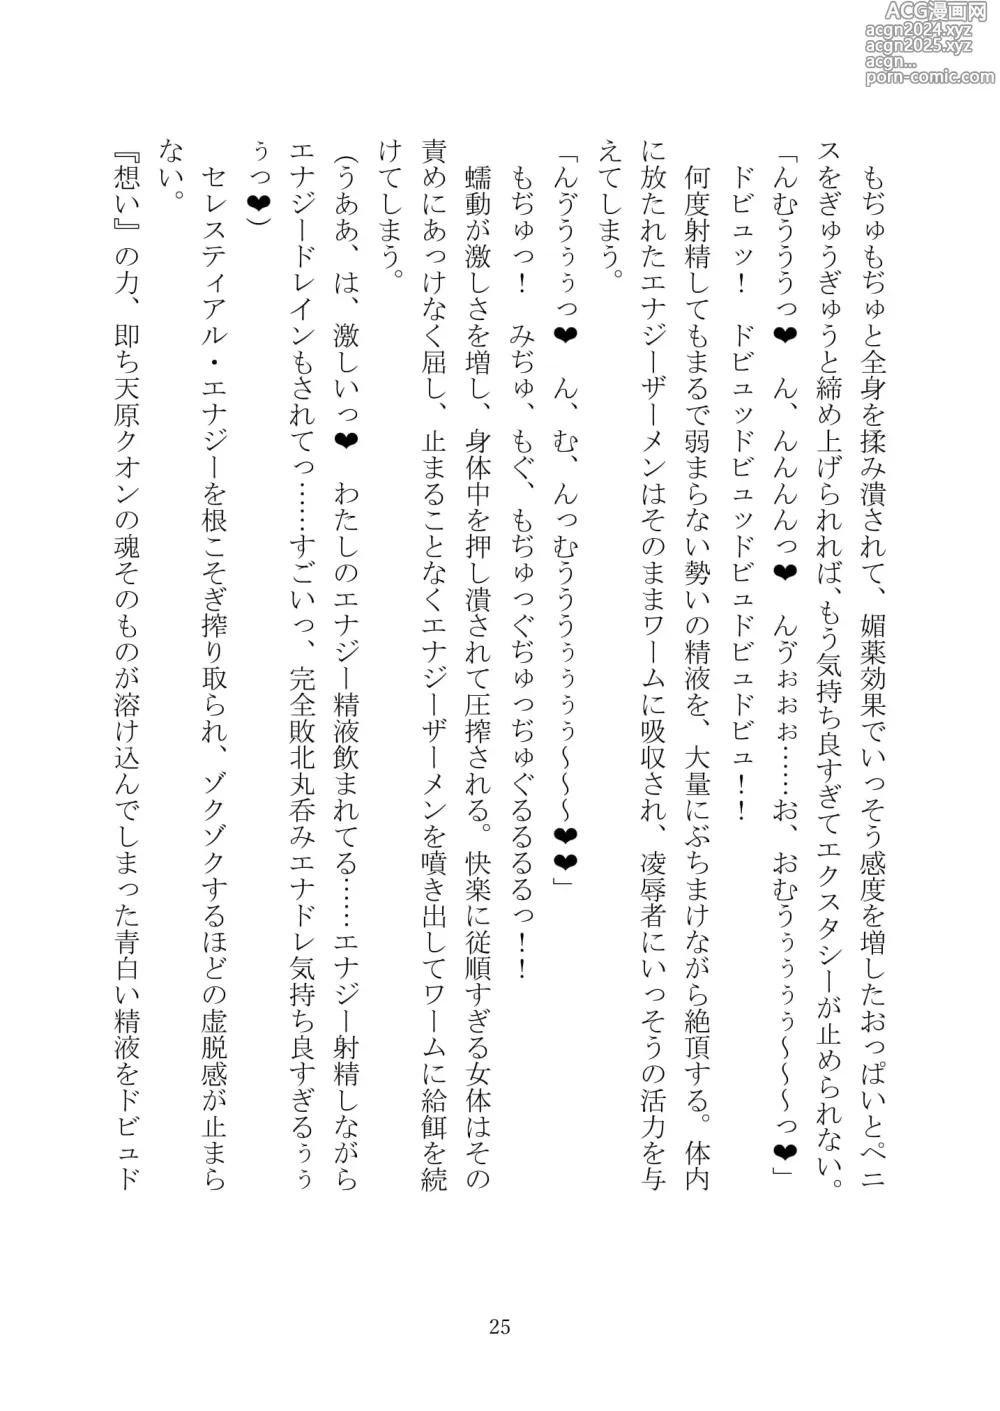 ACG漫画网
acgn2024.xyz
acgn2025.xyz
acgn...
porn-comic.com
　もぢゅもぢゅと全身を揉み潰されて、媚薬効果でいっそう感度を増したおっぱいとペニ
スをぎゅうぎゅうと締め上げられれば、もう気持ち良すぎてエクスタシーが止められない。
「んむうううっ❤　ん、んんんんっ❤　んゔぉぉぉ……お、おむうぅぅぅぅ～～～っ❤」
　ドビュッ！　ドビュッドビュッドビュドビュドビュ！！
　何度射精してもまるで弱まらない勢いの精液を、大量にぶちまけながら絶頂する。体内
に放たれたエナジーザーメンはそのままワームに吸収され、凌辱者にいっそうの活力を与
えてしまう。
「んゔうぅぅっ❤　ん、む、んっむうううぅぅぅぅ～～～❤❤」
　もぢゅっ！　みぢゅ、もぐ、もぢゅっぐぢゅっぢゅぐるるるるっ！！
　蠕動が激しさを増し、身体中を押し潰されて圧搾される。快楽に従順すぎる女体はその
責めにあっけなく屈し、止まることなくエナジーザーメンを噴き出してワームに給餌を続
けてしまう。
（うああ、は、激しいっ❤　わたしのエナジー精液飲まれてる……エナジー射精しながら
エナジードレインもされてっ……すごいっ、完全敗北丸呑みエナドレ気持ち良すぎるぅぅ
ぅっ❤）
　セレスティアル・エナジーを根こそぎ搾り取られ、ゾクゾクするほどの虚脱感が止まら
ない。
『想い』の力、即ち天原クオンの魂そのものが溶け込んでしまった青白い精液をドビュド
25